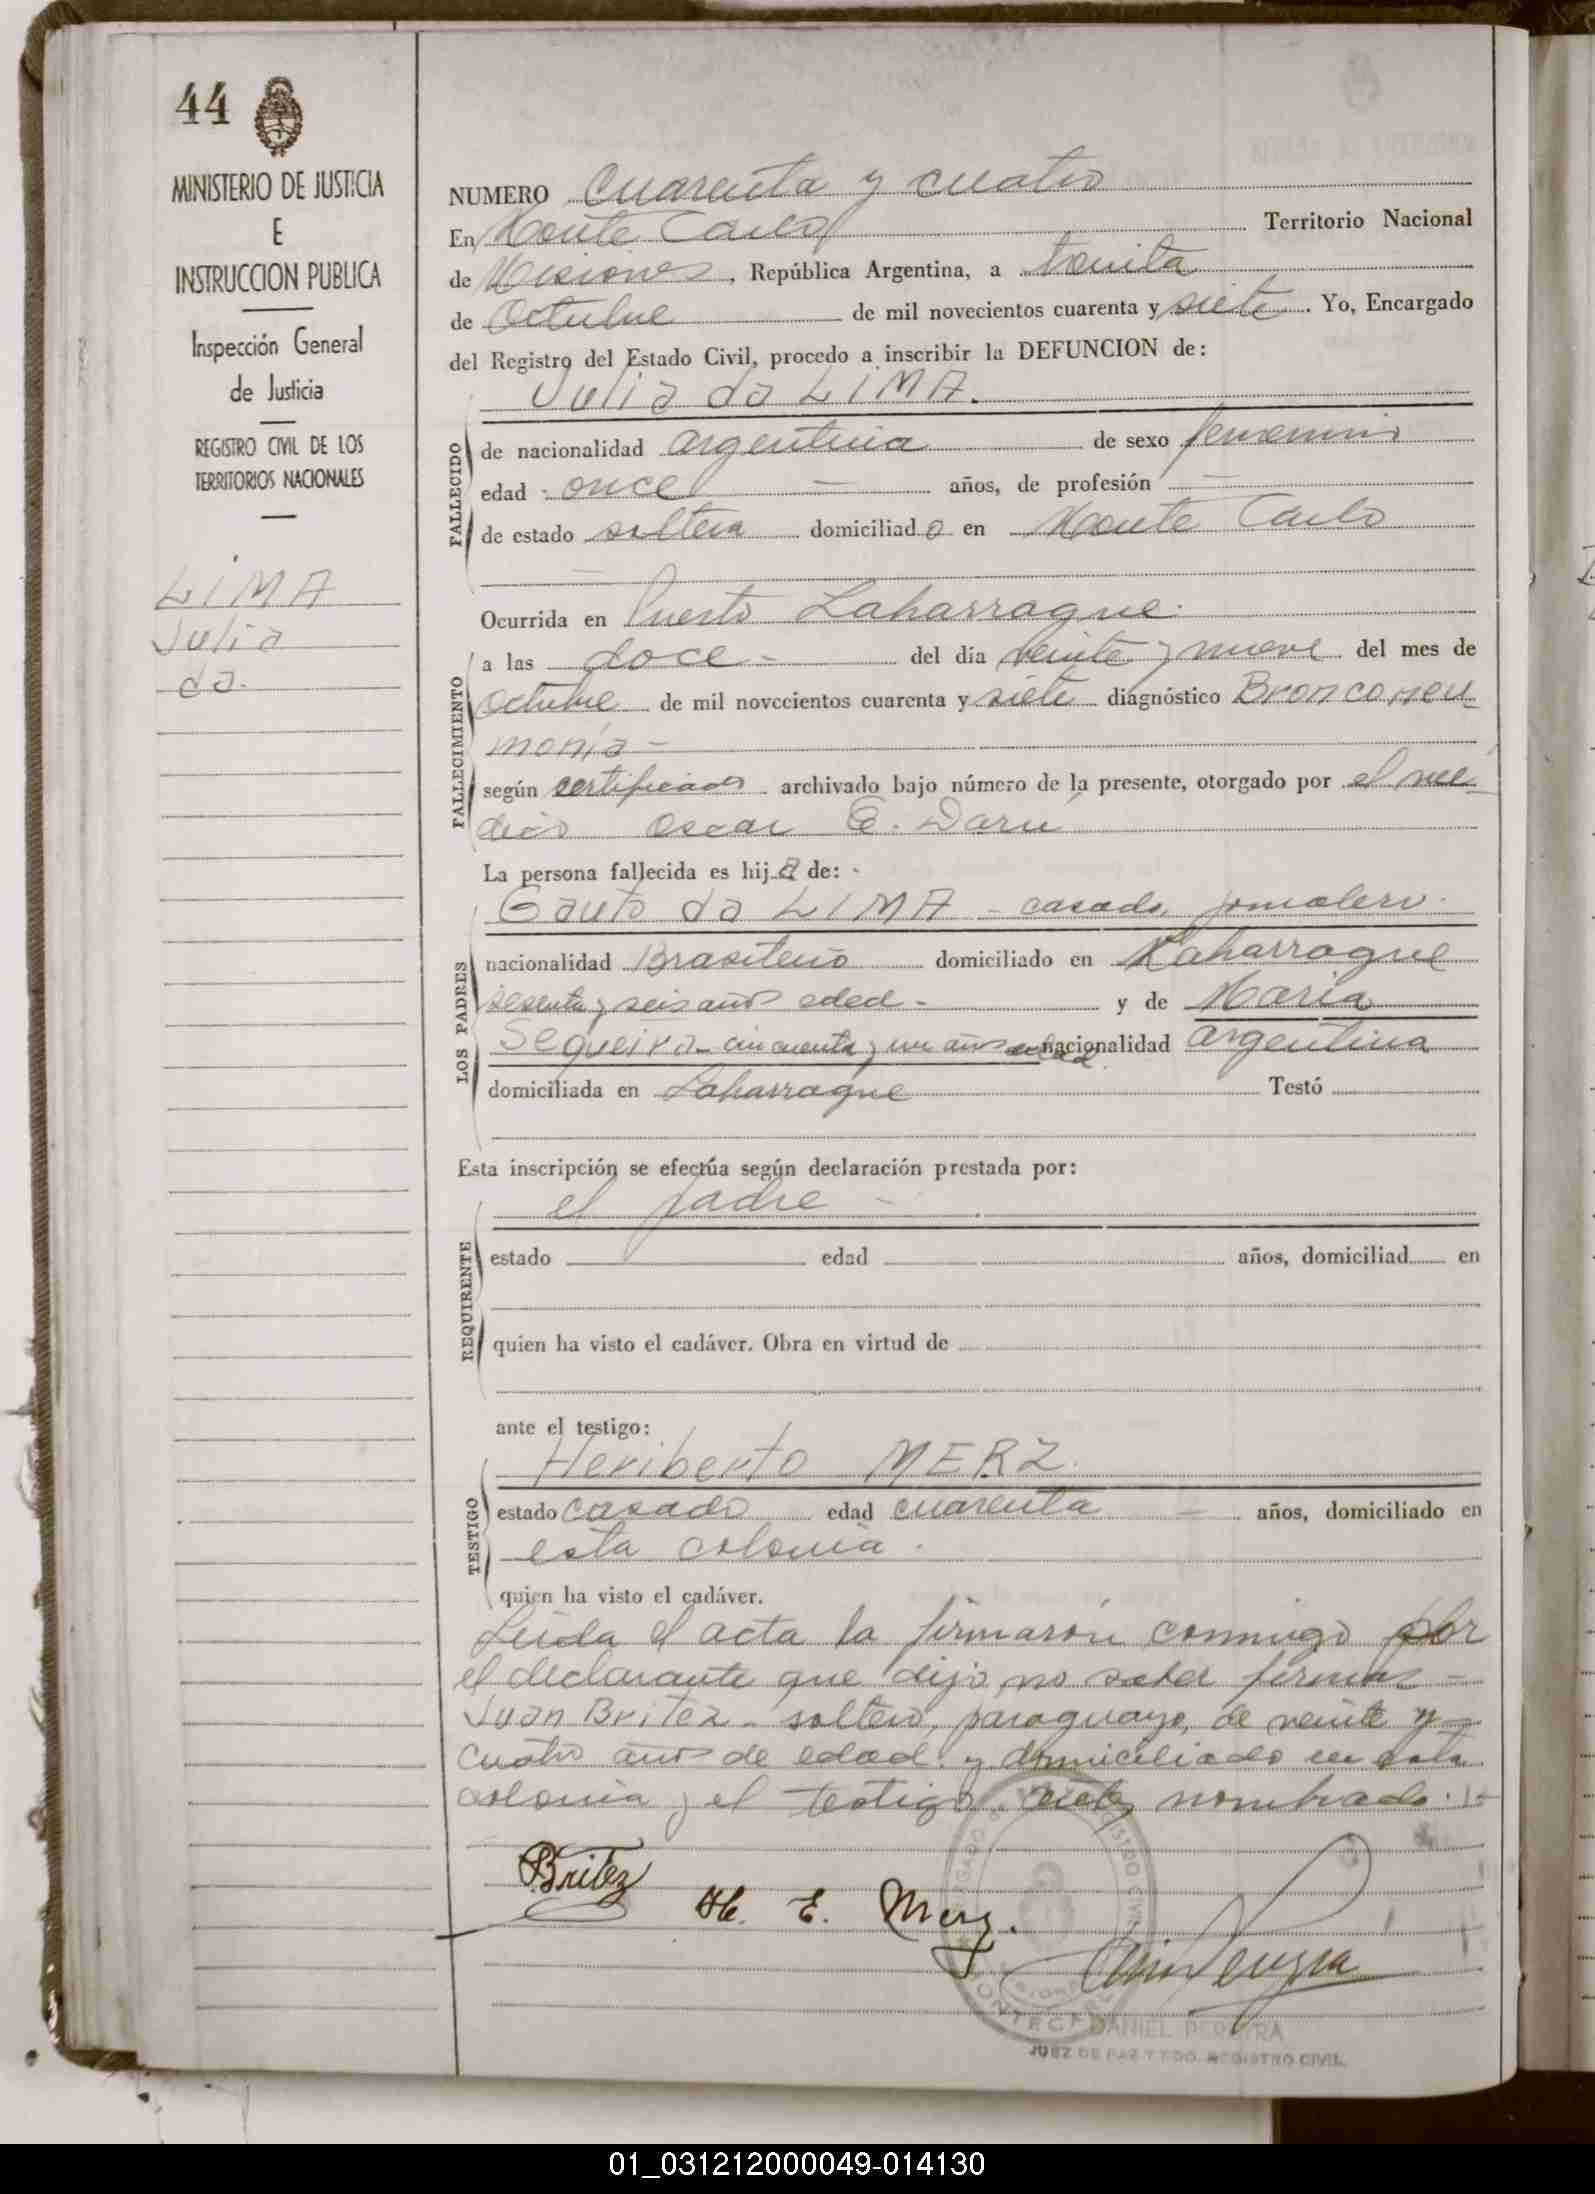 44
MINISTERIO DE JUSTICIA
E
INSTRUCCION PUBLICA
Inspección General
de Justicia
REGISTRO CIVIL DE LOS
TERRITORIOS NACIONALES
LIMA
Julia
da.
NUMERO Cuarenta y cuatro
En Monte Carlo Territorio Nacional
de Misiones, República Argentina, a treinta
de Octubre de mil novecientos cuarenta y siete. Yo, Encargado
del Registro del Estado Civil, procedo a inscribir la DEFUNCION de:
Julia da LIMA.
FALLECIDO
de nacionalidad argentina de sexo femenino
edad once – años, de profesión –
de estado soltera domiciliado en Monte Carlo
Ocurrida en Puerto Laharrague.
FALLECIMIENTO
a las doce - del día veinte y nueve del mes de
Octubre de mil novecientos cuarenta y siete diagnóstico Bronconeu
monía -
según certificado archivado bajo número de la presente, otorgado por el mé-
dico Oscar E. Darú
La persona fallecida es hija de:
LOS PADRES
da LIMA - casado, jornalero.
nacionalidad Brasilero domiciliado en Laharrague
sesenta y seis años edad - y de María
Sequeira - cincuenta y un años edad. nacionalidad argentina
domiciliada en Laharrague Testó
Esta inscripción se efectúa según declaración prestada por:
el padre -
REQUIRENTE
estado edad años, domiciliad en
quien ha visto el cadáver. Obra en virtud de
ante el testigo:
Heriberto MERZ.
TESTIGO
estado casado edad cuarenta – años, domiciliado en
esta colonia.
quien ha visto el cadáver.
Leída el acta la firmarón conmigo por
el declarante que dijo no saber firmar -
Juan Britez - soltero, paraguayo, de veinte y
cuatro años de edad y domiciliado en esta
colonia y el testigo nombrado.
Britez
H. E. Merz.
DANIEL PEREYRA
JUEZ DE PAZ Y EDO. REGISTRO CIVIL
01_031212000049-014130